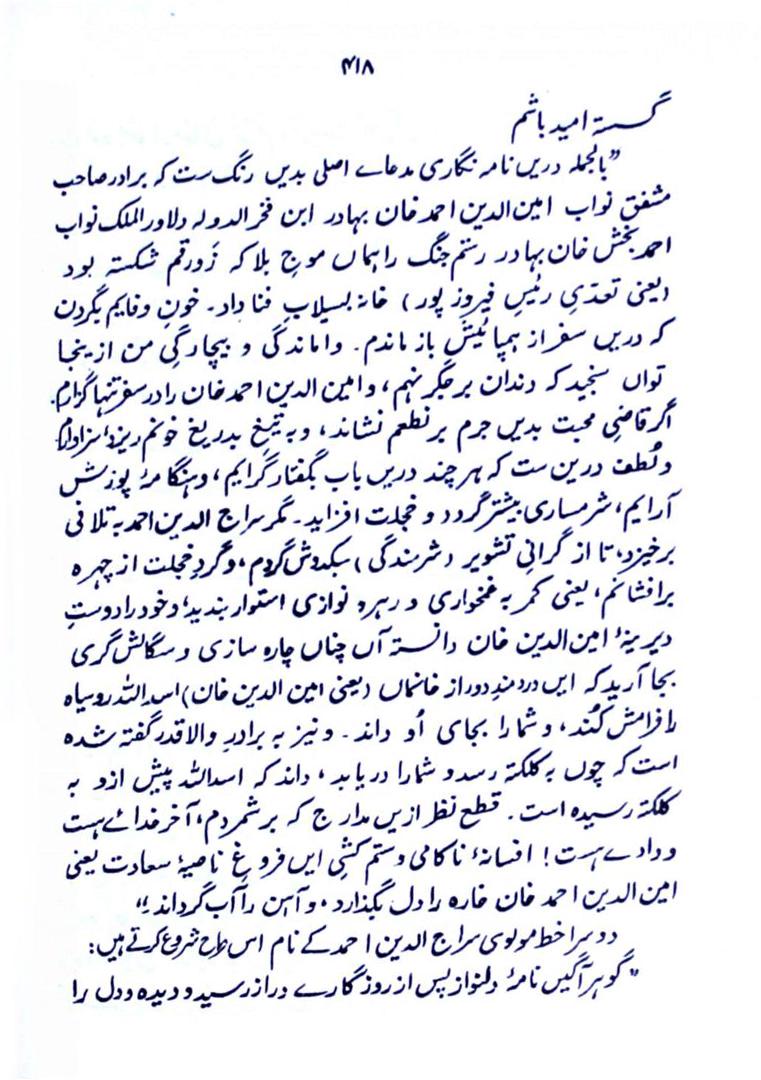 ۴۱۸
گسستہ امید باشم
”بالجملہ دریں نامہ نگاری مدعاے اصلی بدیں رنگ ست کہ برادر صاحب
مشفق نواب امین الدین احمد خان بہادر ابن فخر الدولہ دلاور الملک نواب
احمد بخش خان بہادر رستم جنگ را ہماں موج بلا کہ زورقم شکستہ بود
(یعنی تعدّیِ رئیسِ فیروز پور) خانہ بسیلابِ فنا داد۔ خونِ وفایم بگردن
کہ دریں سفر از ہمپائیش باز ماندم۔ واماندگی و بیچارگیِ من ازینجا
تواں سنجید کہ دندان بر جگر نہم، و امین الدین احمد خان را در سفر تنہا گزارم۔
اگر قاضیِ محبت بدیں جرم بر نطعم نشاند، و بہ تیغِ بدریغ خونم ریزد سزاوارم
و لُطف درین ست کہ ہر چند دریں باب بگفتار گرایم، و ہنگامۂ پوزش
آرایم، شرمساری بیشتر گردد و خجلت افزاید۔ مگر سراج الدین احمد بہ تلافی
برخیزد، تا از گرانیِ تشویر (شرمندگی) سبکدوش گردم، و گردِ خجلت از چہرہ
برافشانم، یعنی کمر بہ غمخواری و رہرو نوازی استوار بندید، و خود را دوستِ
دیرینۂ امین الدین خان دانستہ آں چناں چارہ سازی و سگالش گری
بجا آرید کہ ایں دردمندِ دور از خانماں (یعنی امین الدین خان) اسد اللہ روسیاہ
را فرامش کُند، و شما را بجای اُو داند۔ و نیز بہ برادرِ والا قدر گفتہ شدہ
است کہ چوں بہ کلکتہ رسد و شما را دریابد، داند کہ اسد اللہ پیش ازو بہ
کلکتہ رسیدہ است۔ قطع نظر ازیں مدارج کہ برشمردم، آخر خداے ہست
و دادے ہست! افسانۂ ناکامی و ستم کشیِ ایں فروغِ ناصیۂ سعادت یعنی
امین الدین احمد خان خارہ را دل بگذارد، و آہن را آب گرداند۔“
دوسرا خط مولوی سراج الدین احمد کے نام اس طرح شروع کرتے ہیں:
”گوہر آگیں نامۂ دلنواز پس از روزگارے دراز رسید و دیدہ و دل را